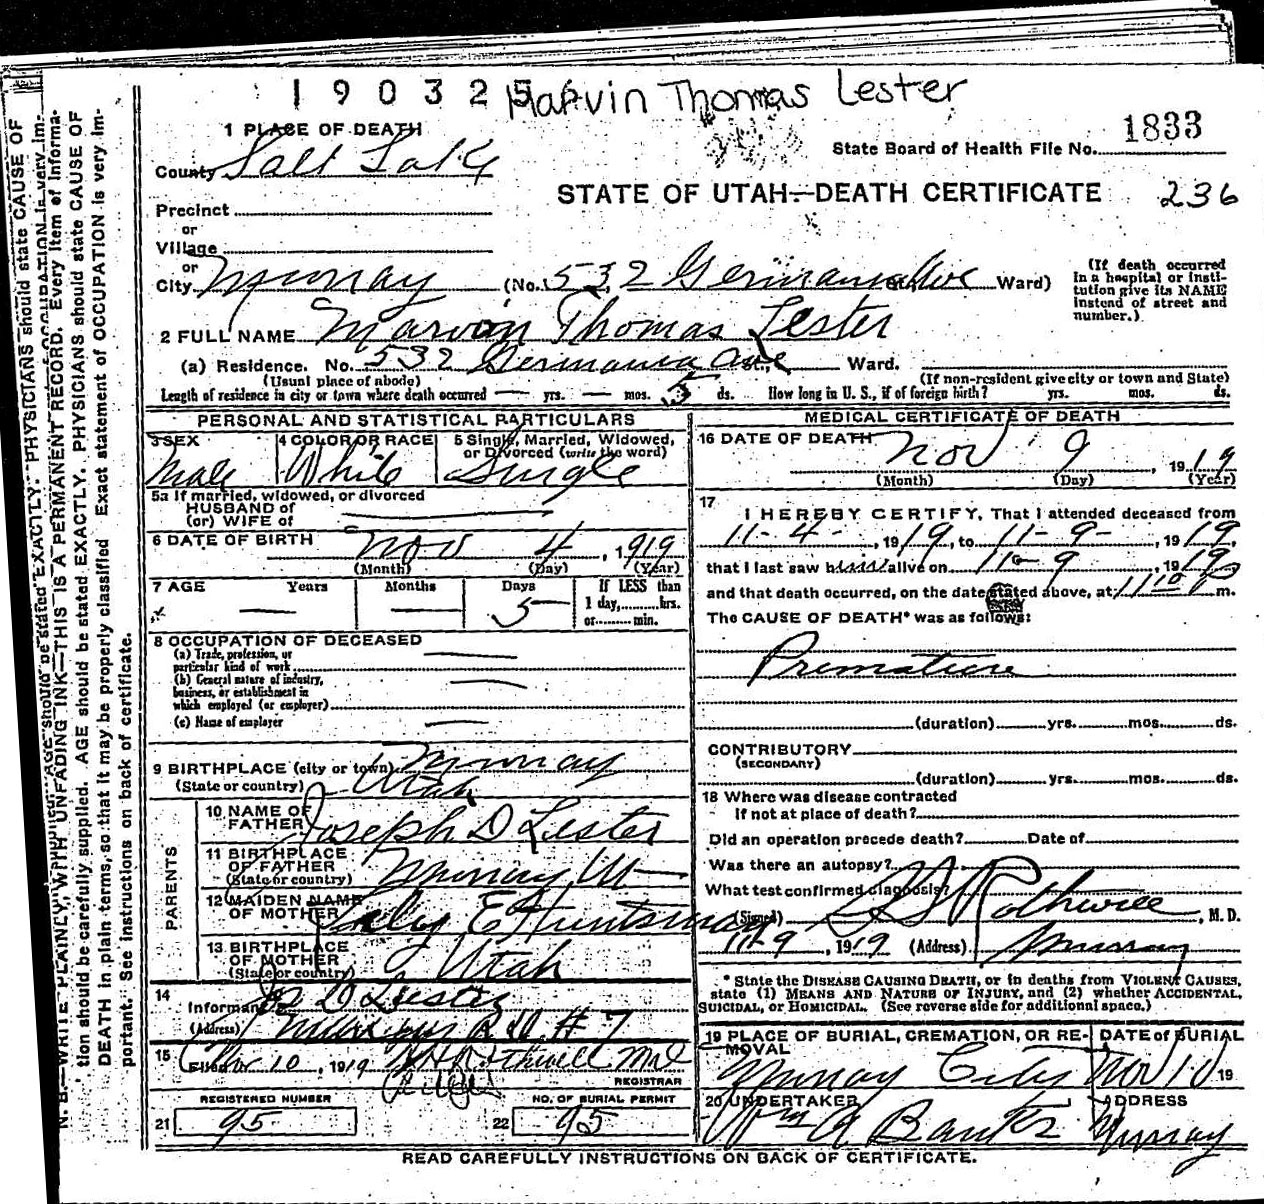 190325 Marvin Thomas Lester
1833
State Board of Health File No.
STATE OF UTAH—DEATH CERTIFICATE 236
1 PLACE OF DEATH
County Salt Lake
Precinct
or
Village
or
City Murray (No. 532 Germania Ave Ward)
(If death occurred in a hospital or institution give its NAME instead of street and number.)
2 FULL NAME Marvin Thomas Lester
(a) Residence. No. 532 Germania Ave St., Ward.
(Usual place of abode) (If non-resident give city or town and State)
Length of residence in city or town where death occurred — yrs. — mos. 5 ds. How long in U. S., if of foreign birth? yrs. mos. ds.
PERSONAL AND STATISTICAL PARTICULARS
3 SEX 4 COLOR OR RACE 5 Single, Married, Widowed, or Divorced (write the word)
Male White Single
5a If married, widowed, or divorced
HUSBAND of
(or) WIFE of
6 DATE OF BIRTH Nov 4, 1919
(Month) (Day) (Year)
7 AGE Years Months Days If LESS than
— — 5 1 day,......hrs.
or......min.
8 OCCUPATION OF DECEASED
(a) Trade, profession, or
particular kind of work
(b) General nature of industry,
business, or establishment in
which employed (or employer)
(c) Name of employer
9 BIRTHPLACE (city or town) Murray
(State or country) Utah
PARENTS
10 NAME OF FATHER Joseph D Lester
11 BIRTHPLACE OF FATHER (State or country) Murray Ut
12 MAIDEN NAME OF MOTHER E Huntsman
13 BIRTHPLACE OF MOTHER (State or country) Utah
14 Informant D Lester
(Address) R. D. # 7
15 Filed Nov 10, 1919 Rothwell MD
REGISTRAR
REGISTERED NUMBER NO. OF BURIAL PERMIT
21 95 22 95
MEDICAL CERTIFICATE OF DEATH
16 DATE OF DEATH Nov 9, 1919
(Month) (Day) (Year)
17 I HEREBY CERTIFY, That I attended deceased from
11-4-, 1919, to 11-9-, 1919,
that I last saw him alive on 11-9, 1919
and that death occurred, on the date stated above, at 11 10 P m.
The CAUSE OF DEATH* was as follows:
Premature
(duration) yrs. mos. ds.
CONTRIBUTORY
(SECONDARY)
(duration) yrs. mos. ds.
18 Where was disease contracted
If not at place of death?
Did an operation precede death? Date of
Was there an autopsy?
What test confirmed diagnosis?
(Signed) Rothwell, M. D.
11-9, 1919 (Address) Murray
* State the DISEASE CAUSING DEATH, or in deaths from VIOLENT CAUSES,
state (1) MEANS AND NATURE OF INJURY, and (2) whether ACCIDENTAL,
SUICIDAL, or HOMICIDAL. (See reverse side for additional space.)
19 PLACE OF BURIAL, CREMATION, OR REMOVAL DATE of BURIAL
Murray City Nov 10 19
20 UNDERTAKER ADDRESS
Wm A Murray
READ CAREFULLY INSTRUCTIONS ON BACK OF CERTIFICATE.
N. B.—WRITE PLAINLY, WITH UNFADING INK—THIS IS A PERMANENT RECORD. Every item of Informa-
tion should be carefully supplied. AGE should be stated EXACTLY. PHYSICIANS should state CAUSE OF
DEATH in plain terms, so that it may be properly classified. Exact statement of OCCUPATION is very im-
portant. See instructions on back of certificate.